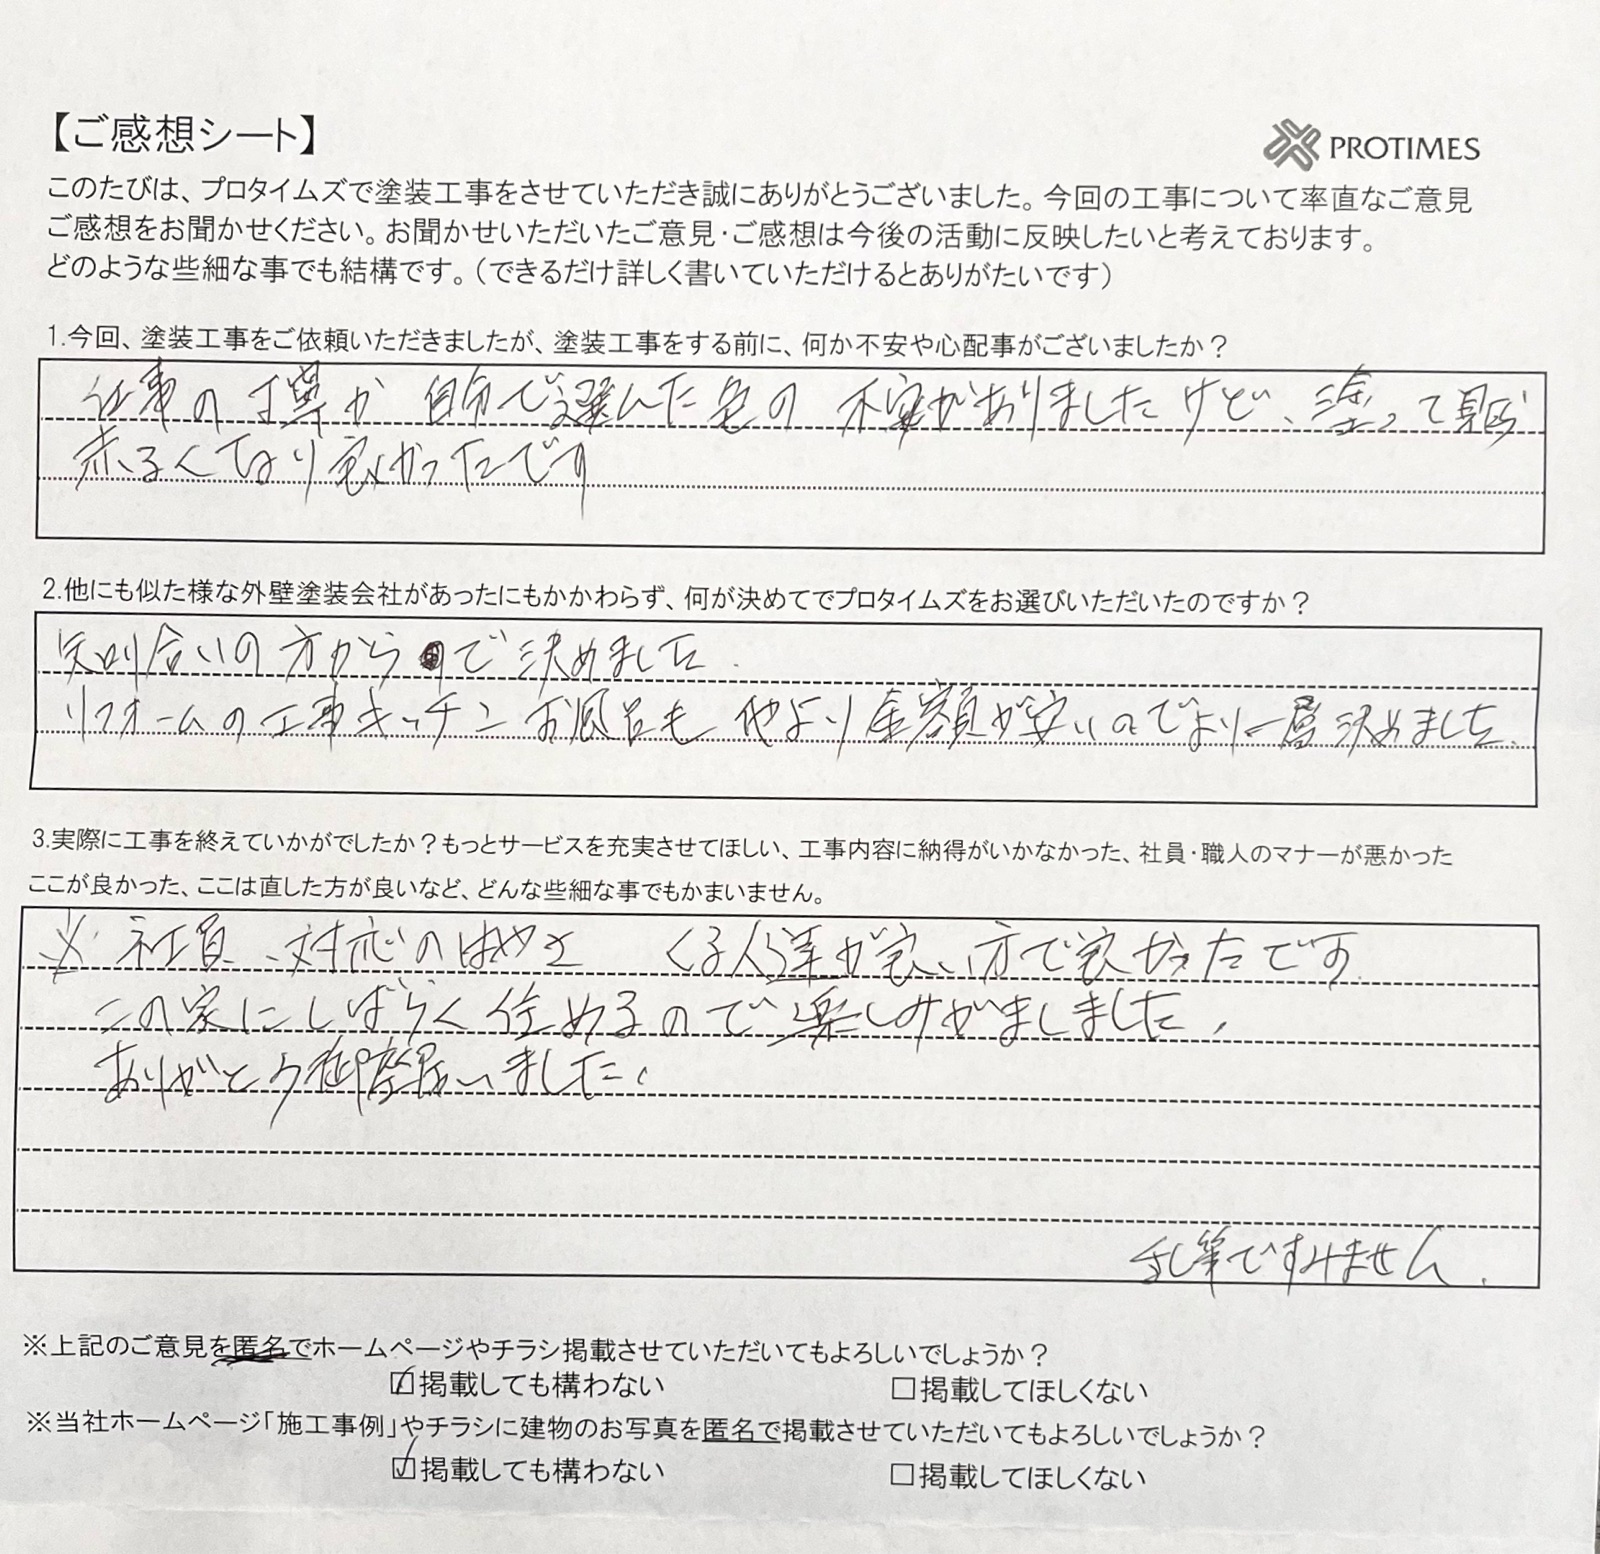 【ご感想シート】
PROTIMES
このたびは、プロタイムズで塗装工事をさせていただき誠にありがとうございました。今回の工事について率直なご意見
ご感想をお聞かせください。お聞かせいただいたご意見・ご感想は今後の活動に反映したいと考えております。
どのような些細な事でも結構です。（できるだけ詳しく書いていただけるとありがたいです）
1.今回、塗装工事をご依頼いただきましたが、塗装工事をする前に、何か不安や心配事がございましたか？
仕事の丁寧か 自分で選んだ色の 不安がありましたけど、塗って見
るくなり良かったです
2.他にも似た様な外壁塗装会社があったにもかかわらず、何が決めてでプロタイムズをお選びいただいたのですか？
知り合いの方からので決めました
リフォームの工事キッチン お風呂も 他より金額が安いのでより一層決めました
3.実際に工事を終えていかがでしたか？もっとサービスを充実させてほしい、工事内容に納得がいかなかった、社員・職人のマナーが悪かった
ここが良かった、ここは直した方が良いなど、どんな些細な事でもかまいません。
社員、対応のはやさ くる人達が良い方で良かったです
この家にしばらく住めるので楽しみがましました。
ありがとう御座居いました。
乱筆ですみません.
※上記のご意見を匿名でホームページやチラシ掲載させていただいてもよろしいでしょうか？
☑掲載しても構わない □掲載してほしくない
※当社ホームページ「施工事例」やチラシに建物のお写真を匿名で掲載させていただいてもよろしいでしょうか？
☑掲載しても構わない □掲載してほしくない